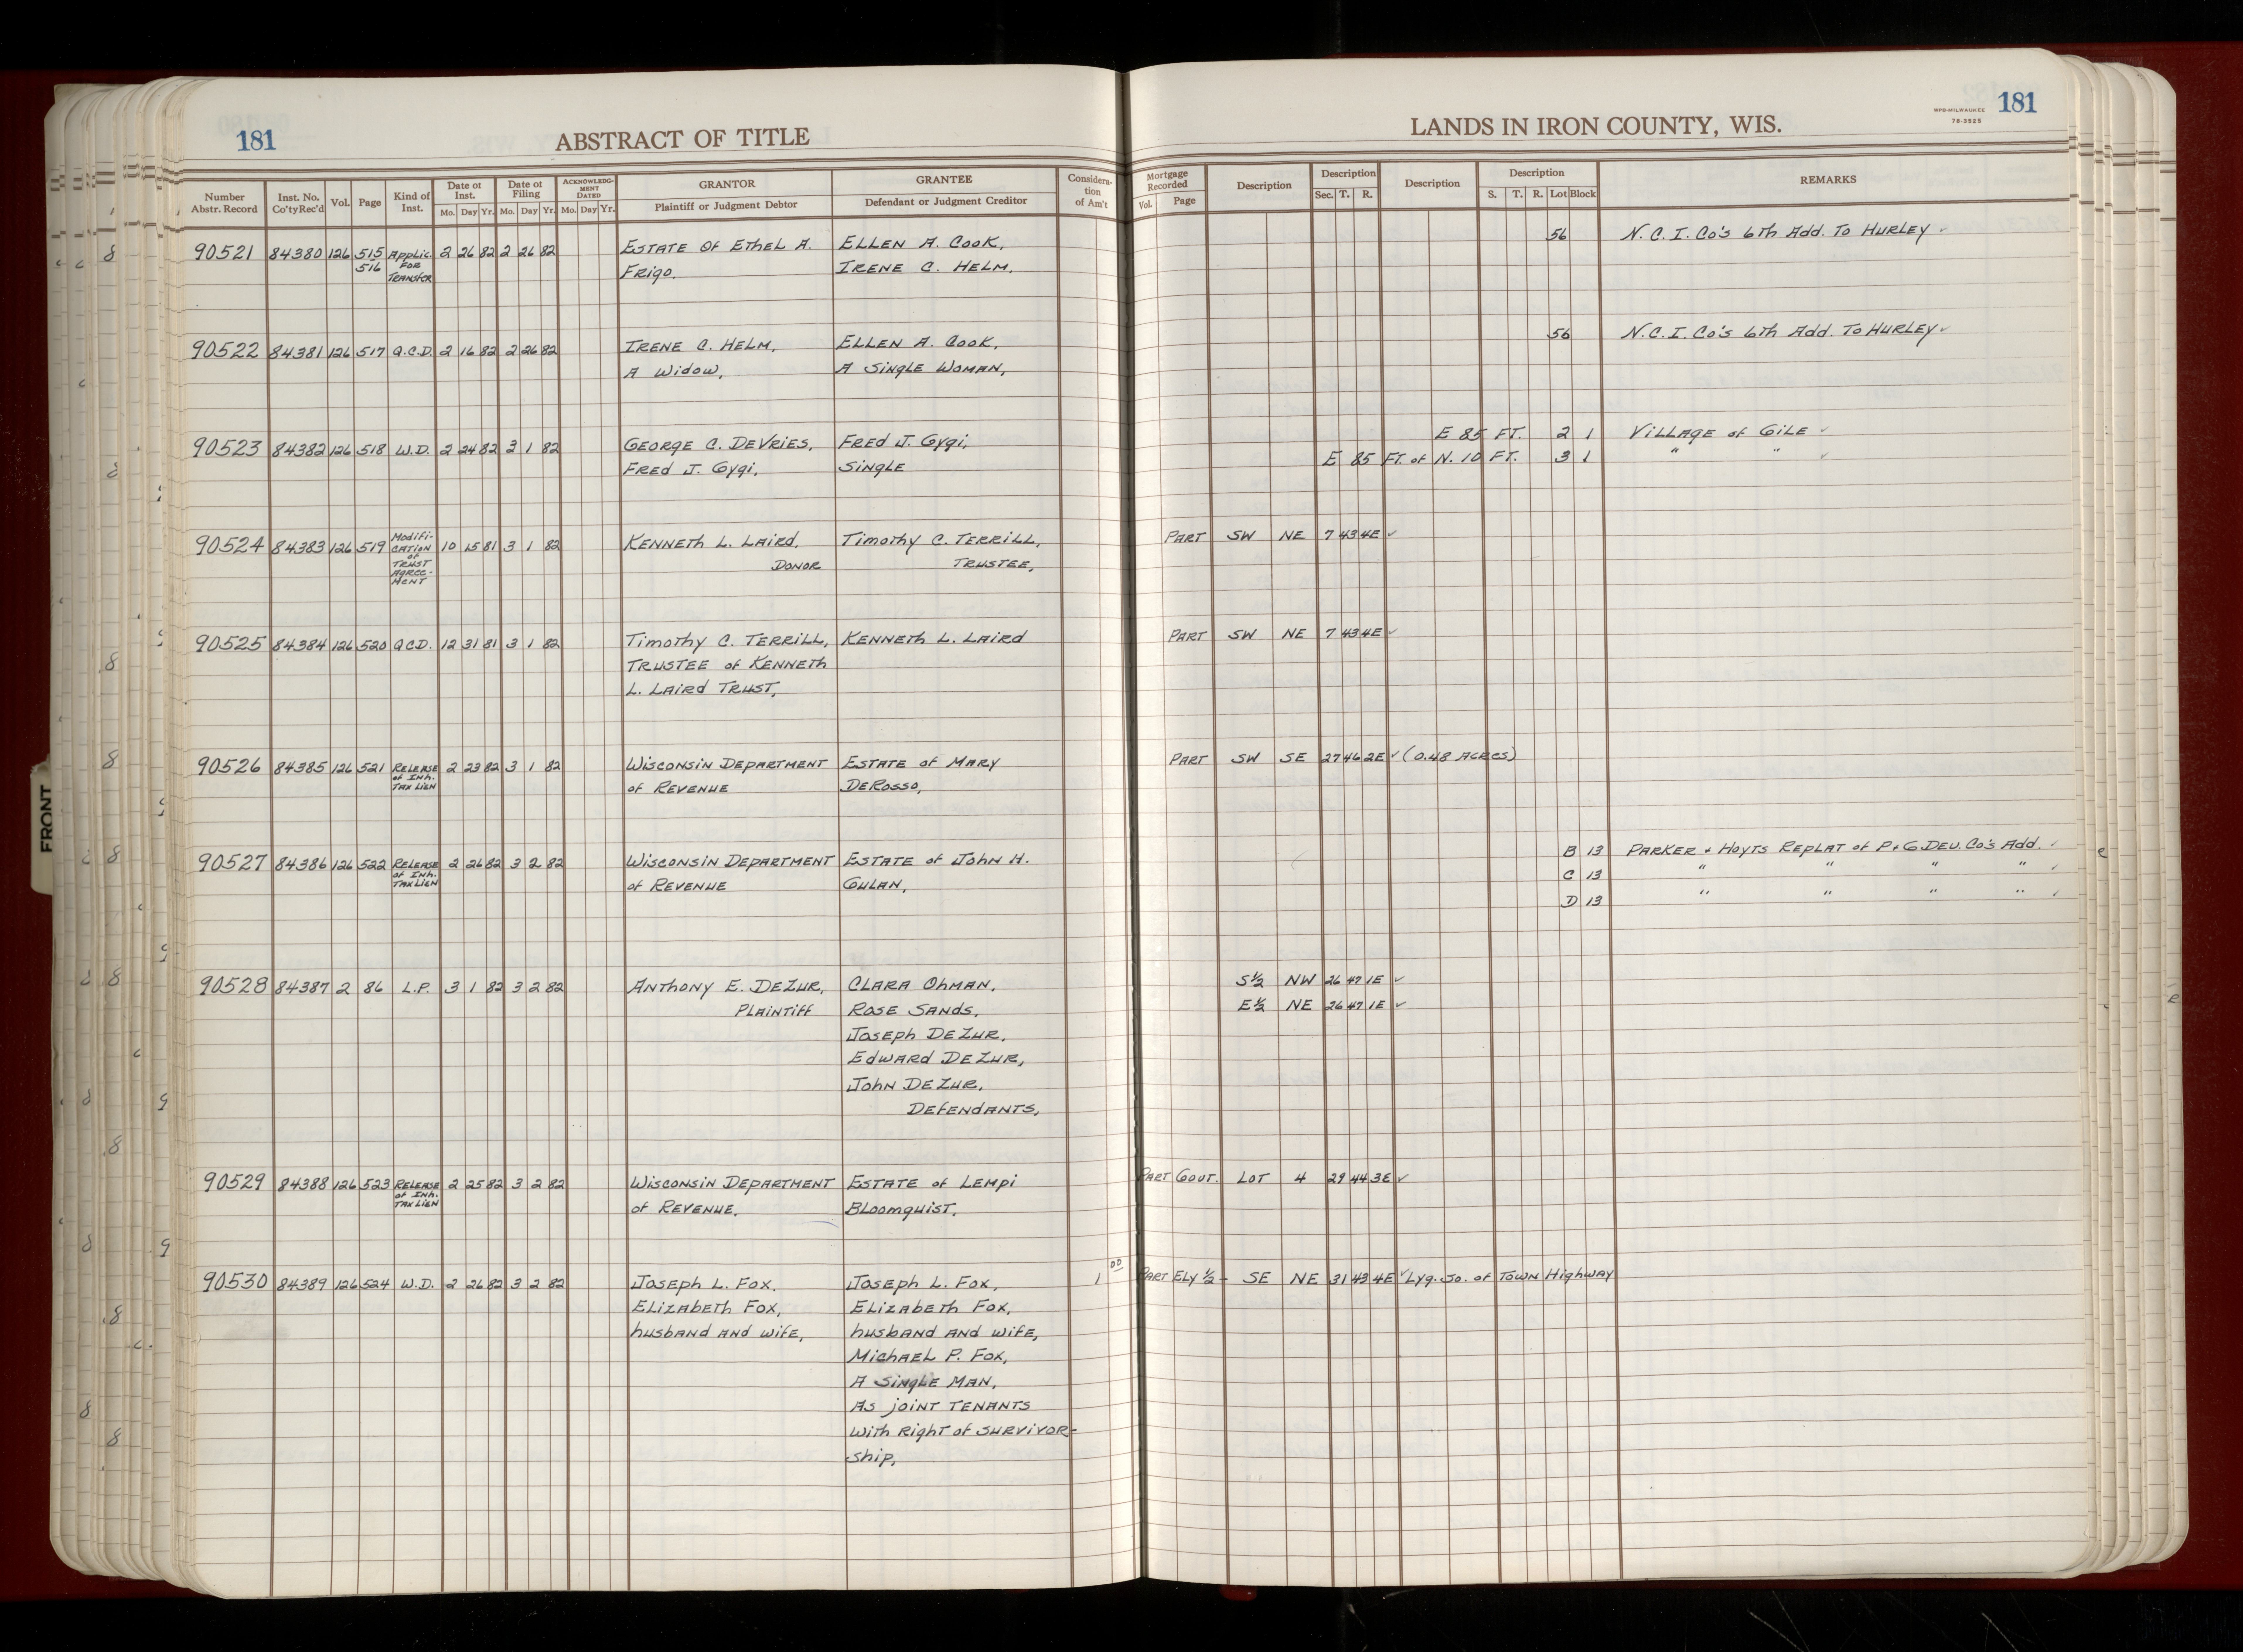 181
ABSTRACT OF TITLE
LANDS IN IRON COUNTY, WIS.
WPB-MILWAUKEE
78-3525
181
Number Abstr. Record | Inst. No. Co'ty Rec'd | Vol. | Page | Kind of Inst. | Date of Inst. Mo. Day Yr. | Date of Filing Mo. Day Yr. | ACKNOWLEDGMENT DATED Mo. Day Yr. | GRANTOR Plaintiff or Judgment Debtor | GRANTEE Defendant or Judgment Creditor | Consideration of Am't | Mortgage Recorded Vol. Page | Description | Description Sec. T. R. | Description | Description S. T. R. Lot Block | REMARKS
90521 84380 126 515 Applic. 2 26 82 2 26 82 ESTATE OF EthEL A. ELLEN A. COOK, 56 N.C.I. Co's 6th Add. To HURLEY ✓
516 FOR FRigo. IRENE C. HELM,
TRANSFER
90522 84381 126 517 Q.C.D. 2 16 82 2 26 82 IRENE C. HELM, ELLEN A. COOK, 56 N.C.I. Co's 6th Add. To HURLEY ✓
A Widow, A SiNGLE WOMAN,
90523 84382 126 518 W.D. 2 24 82 3 1 82 GEORGE C. DEVRiES, FREd J. Gygi, E 85 FT. 2 1 ViLLAGE of GiLE ✓
FREd J. Gygi, SiNGLE E 85 FT. of N. 10 FT. 3 1 " " ✓
90524 84383 126 519 Modifi- 10 15 81 3 1 82 KENNETh L. LAiRd, Timothy C. TERRiLL, PART SW NE 7 43 4E ✓
CATION DONOR TRUSTEE,
of
TRUST
AGREE-
MENT
90525 84384 126 520 QCD. 12 31 81 3 1 82 Timothy C. TERRiLL, KENNETh L. LAiRd PART SW NE 7 43 4E ✓
TRUSTEE of KENNETh
L. LAiRd TRUST,
90526 84385 126 521 RELEASE 2 23 82 3 1 82 WiSCONSiN DEPARTMENT ESTATE of MARY PART SW SE 27 46 2E ✓ (0.48 ACRES)
of Inh. of REVENUE DEROSSO,
TAX LiEN
90527 84386 126 522 RELEASE 2 26 82 3 2 82 WiSCONSiN DEPARTMENT ESTATE of John H. B 13 PARKER + HOYTS REPLAT of P+G DEV. Co's Add. ✓
of Inh. of REVENUE GULAN, C 13 " " " " ✓
TAX LiEN D 13 " " " " ✓
90528 84387 2 86 L.P. 3 1 82 3 2 82 ANthoNy E. DEZUR, CLARA OhMAN, S½ NW 26 47 1E ✓
PLAiNTiff ROSE SANdS, E½ NE 26 47 1E ✓
JOSEph DEZUR,
EdWARd DEZUR,
JohN DEZUR,
DEfENdANTS,
90529 84388 126 523 RELEASE 2 25 82 3 2 82 WiSCONSiN DEPARTMENT ESTATE of LEMpi PART GOVT. LOT 4 29 44 3E ✓
of Inh. of REVENUE, BLoomquiST,
TAX LiEN
90530 84389 126 524 W.D. 2 26 82 3 2 82 JoSEph L. FOX, JoSEph L. FOX, 1 00 PART ELy ½ - SE NE 31 43 4E ✓ Lyg. So. of TOWN HighWAY
ELiZAbETh FOX, ELiZAbETh FOX,
huSbANd ANd WifE, huSbANd ANd WifE,
MichAEL P. FOX,
A SiNgLE MAN,
AS joiNT TENANTS
With RighT of SURViVOR-
Ship,
FRONT